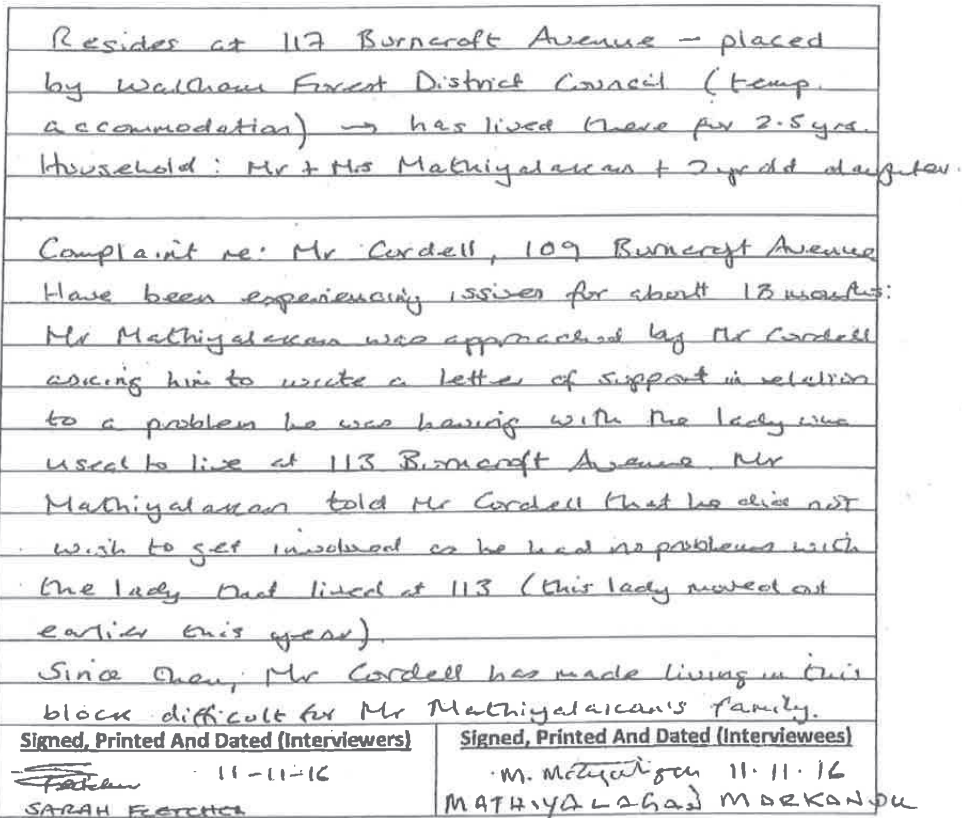 Resides at 117 Burncroft Avenue – placed
by Waltham Forest District Council (temp.
accommodation) → has lived there for 2.5 yrs.
Household: Mr + Mrs Mathiyalakan + 2 yr old daughter.
Complaint re: Mr Cordell, 109 Burncroft Avenue
Have been experiencing issues for about 18 months:
Mr Mathiyalakan was approached by Mr Cordell
asking him to write a letter of support in relation
to a problem he was having with the lady who
used to live at 113 Burncroft Avenue. Mr
Mathiyalakan told Mr Cordell that he did not
wish to get involved as he had no problems with
the lady that lived at 113 (this lady moved out
earlier this year).
Since then, Mr Cordell has made living in this
block difficult for Mr Mathiyalakan's family.
Signed, Printed And Dated (Interviewers)
Fletcher 11-11-16
SARAH FLETCHER
Signed, Printed And Dated (Interviewees)
M. 11.11.16
MATHIYALAGAN MARKANDU